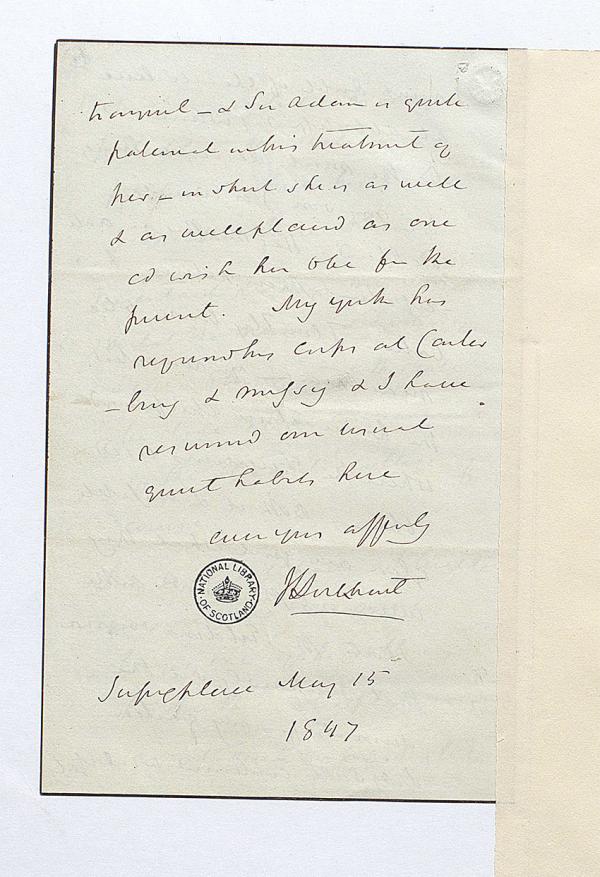 tranquil – & Sir Adam is quite
paternal in his treatment of
her – in short she is as well
& as well placed as one
cd wish her to be for the
present. My youth has
rejoined his corps at Canter
-bury & Missy & I have
resumed our usual
quiet habits here
ever yrs affectly
JGLockhart
NATIONAL LIBRARY
OF SCOTLAND
Sussex place May 15
1847